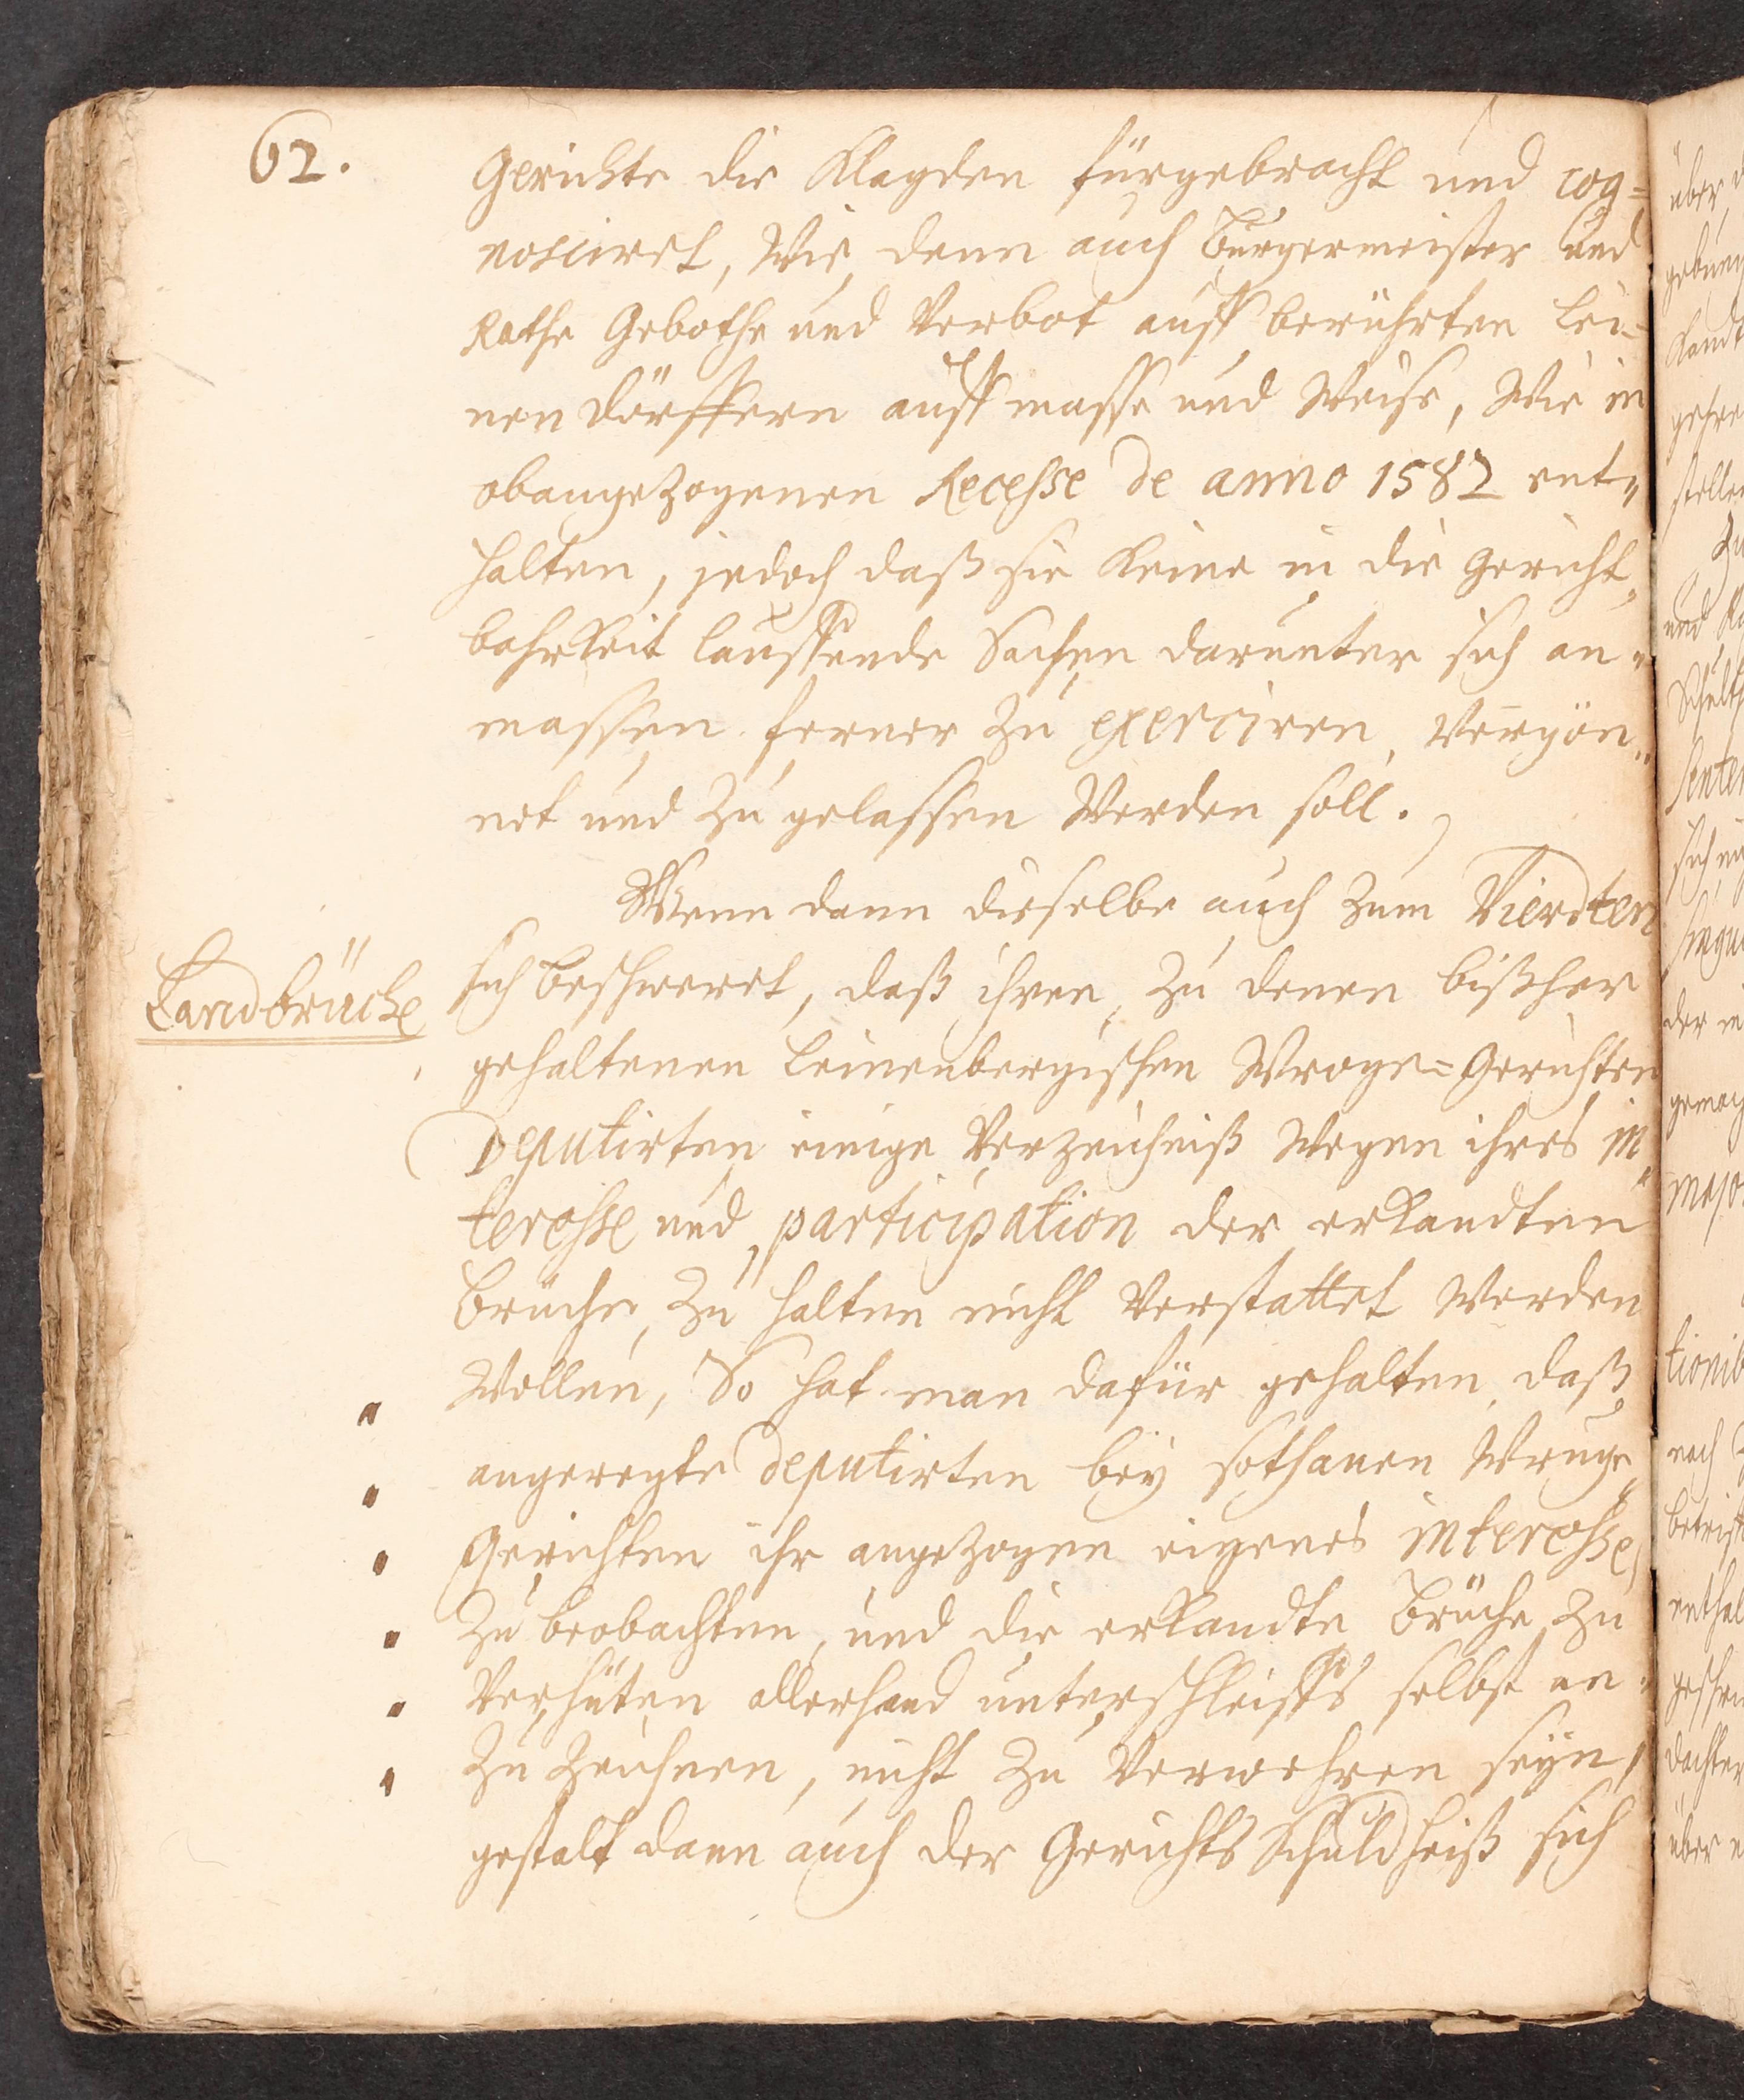 62.
Gerichte die Klagden fürgebracht und cog=
nosciret, Wie denn auch Bürgermeister und
Rathe Gebothe und Verbot auff berührten Lei=
nen dörffern auff masse und Weise, Wie in
obangezogenen Recesse de anno 1582 ent„
halten, jedoch daß sie keine in die Gericht„
bahrkeit lauffende Sachen darunter sich an„
massen ferner zu exerciren, Vergön„
net und zu gelassen Werden soll.
Wenn dann dieselbe auch zum Vierdten
Landbrüche
sich beschweret, daß ihren, zu denen bißher
gehaltenen Leinenbergischen Wroge=Gerichten
Deputirten einige Verzeichniß Wegen ihres in„
teresse und participation der erkandten
Brüche, zu halten nicht Verstattet Werden
Wollen, So hat man dafür gehalten, daß
angeregte Deputirten bey sothanen Wruge„
Gerichten ihr angezogen eigenes interesse,
zu beobachten, und die erkandte Brüche zu
Verhüten allerhand unterschleiffs selbst an„
zu zeichnen, nicht zu Verwehren seyn,
gestalt dann auch der Gerichts Schuldheiß sich